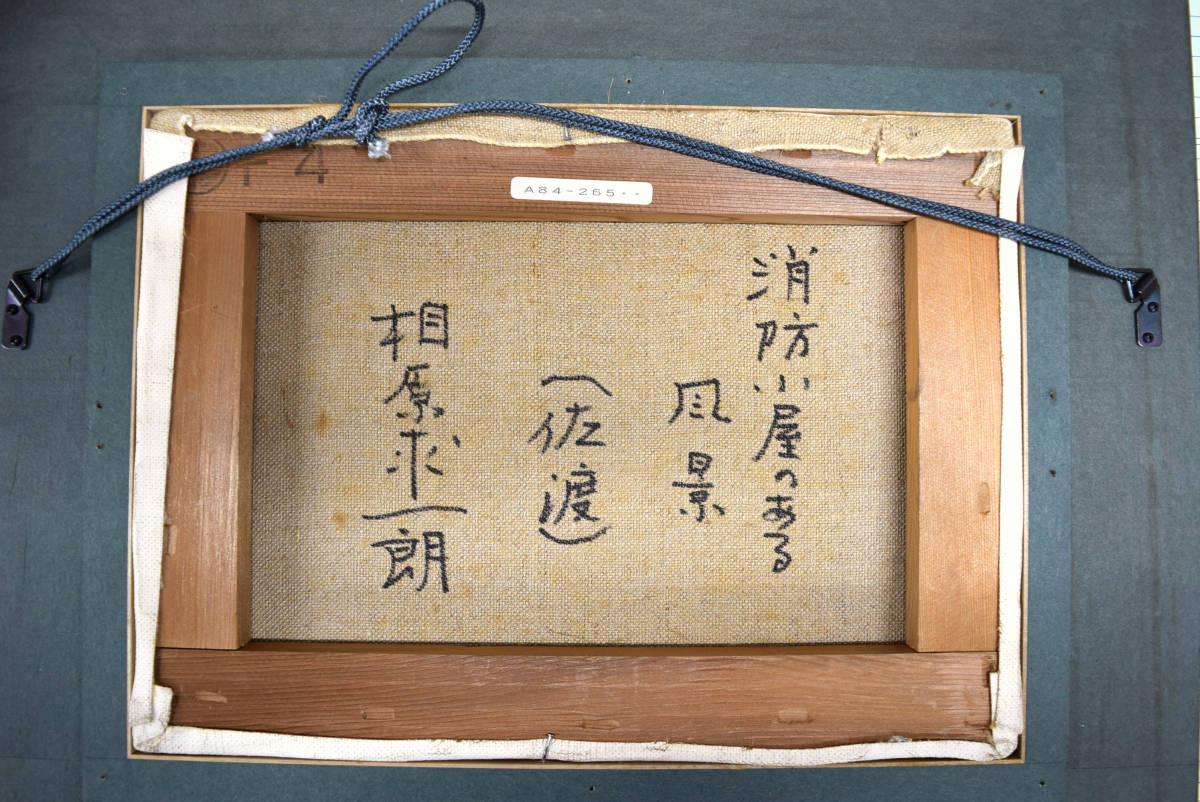 F4
A84-265··
消防小屋のある
風景
(佐渡)
相原求一朗